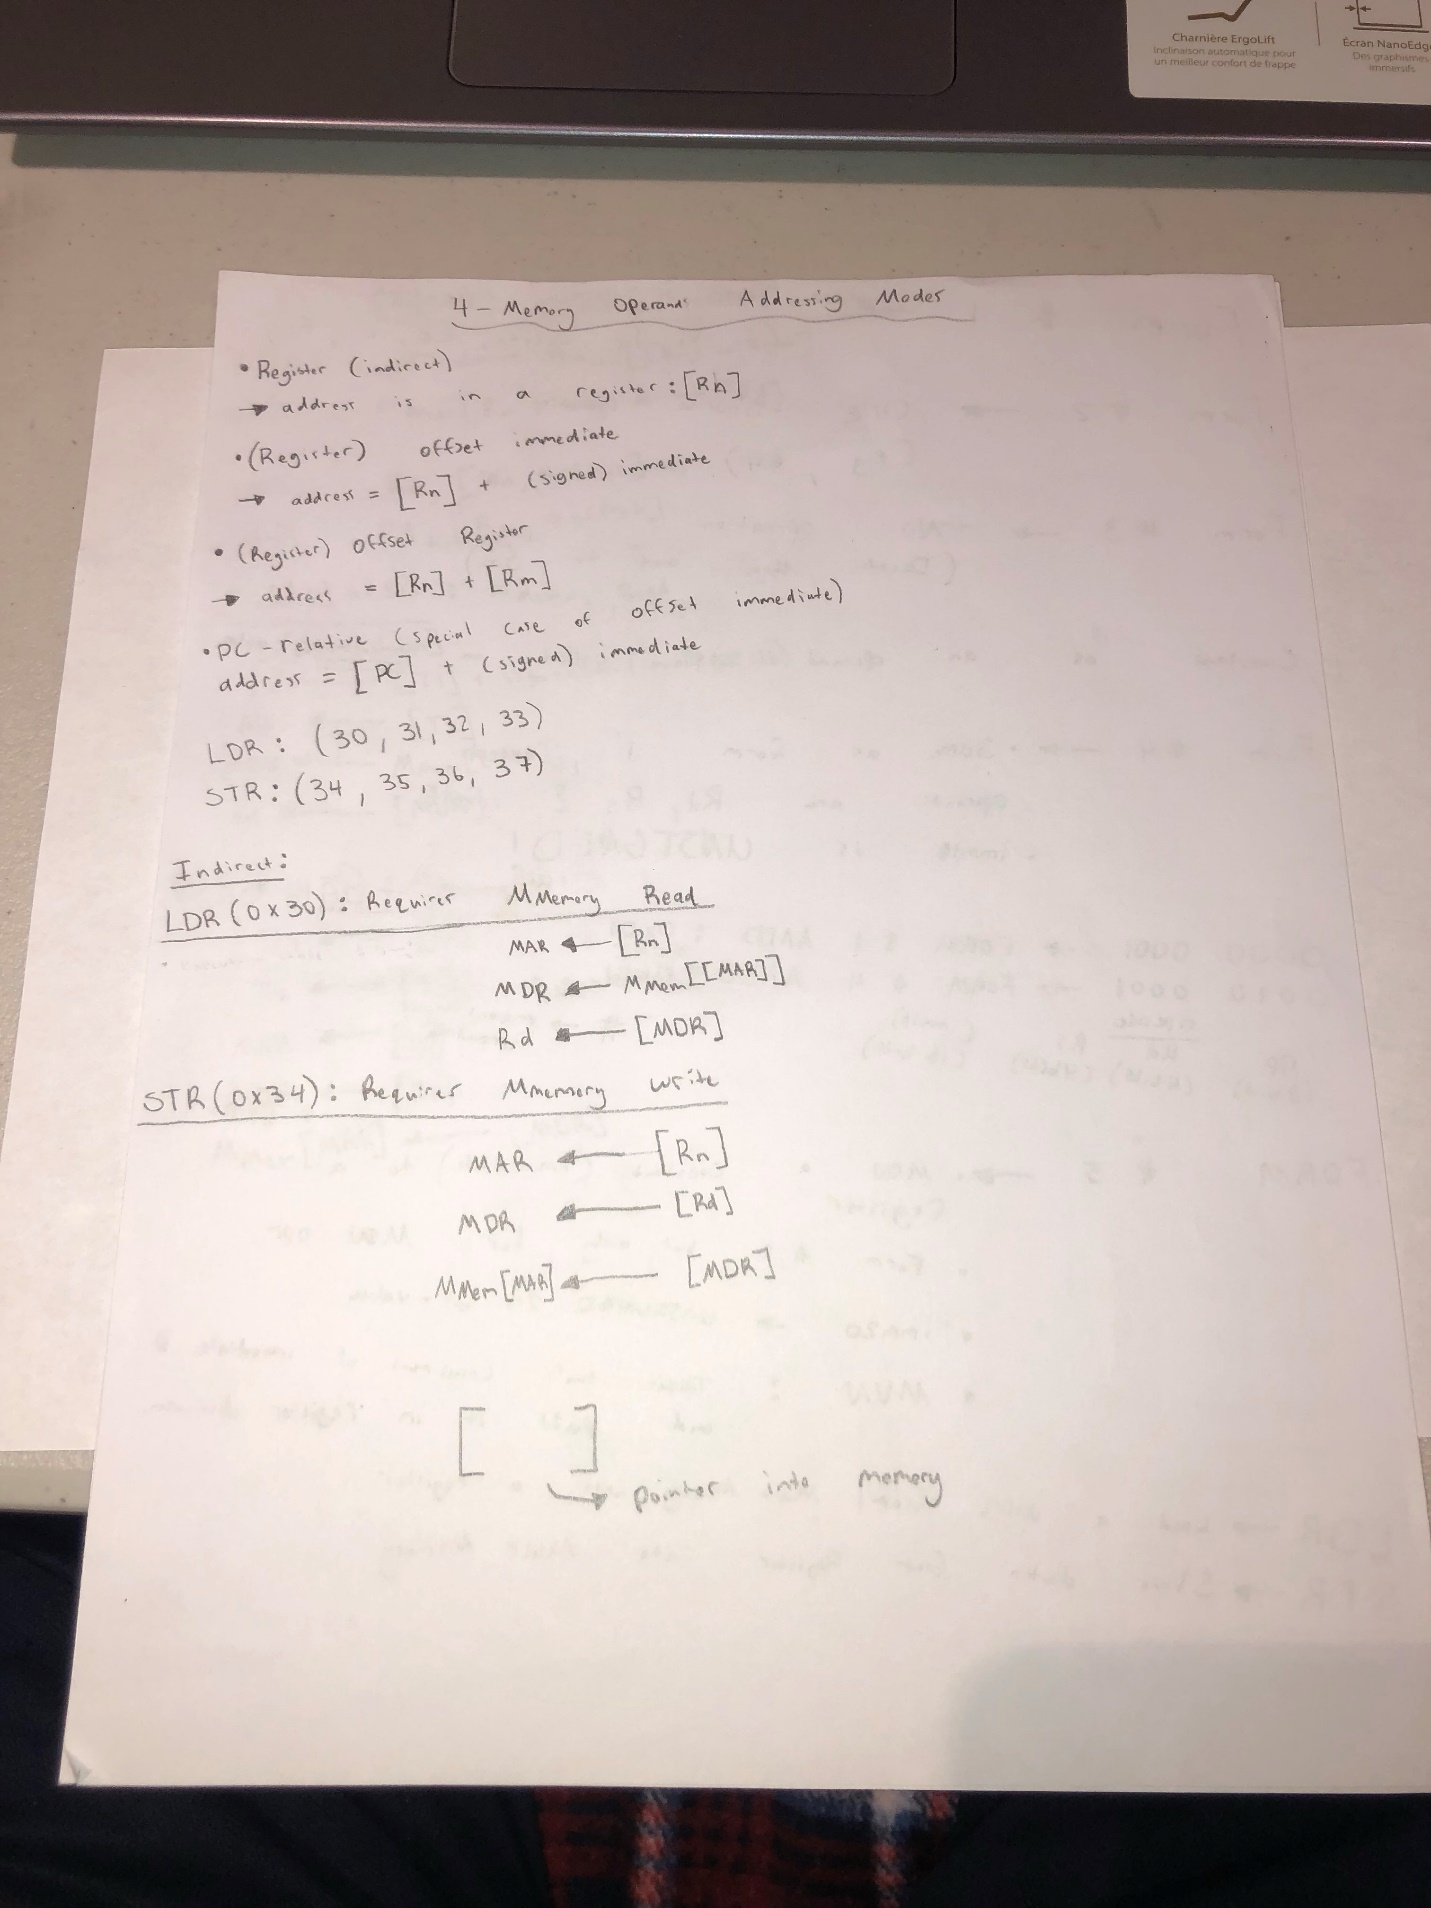 Charnière ErgoLift
Inclinaison automatique pour
un meilleur confort de frappe
Écran NanoEdge
Des graphismes
immersifs
4 - Memory Operand Addressing Modes
• Register (indirect)
→ address is in a register: [Rn]
• (Register) offset immediate
→ address = [Rn] + (signed) immediate
• (Register) Offset Register
→ address = [Rn] + [Rm]
• PC-relative (special case of offset immediate)
address = [PC] + (signed) immediate
LDR: (30, 31, 32, 33)
STR: (34, 35, 36, 37)
Indirect:
LDR (0x30): Requires MMemory Read
MAR ← [Rn]
MDR ← MMem[[MAR]]
Rd ← [MDR]
STR (0x34): Requires MMemory write
MAR ← [Rn]
MDR ← [Rd]
MMem[MAR] ← [MDR]
[ ]
→ pointer into memory